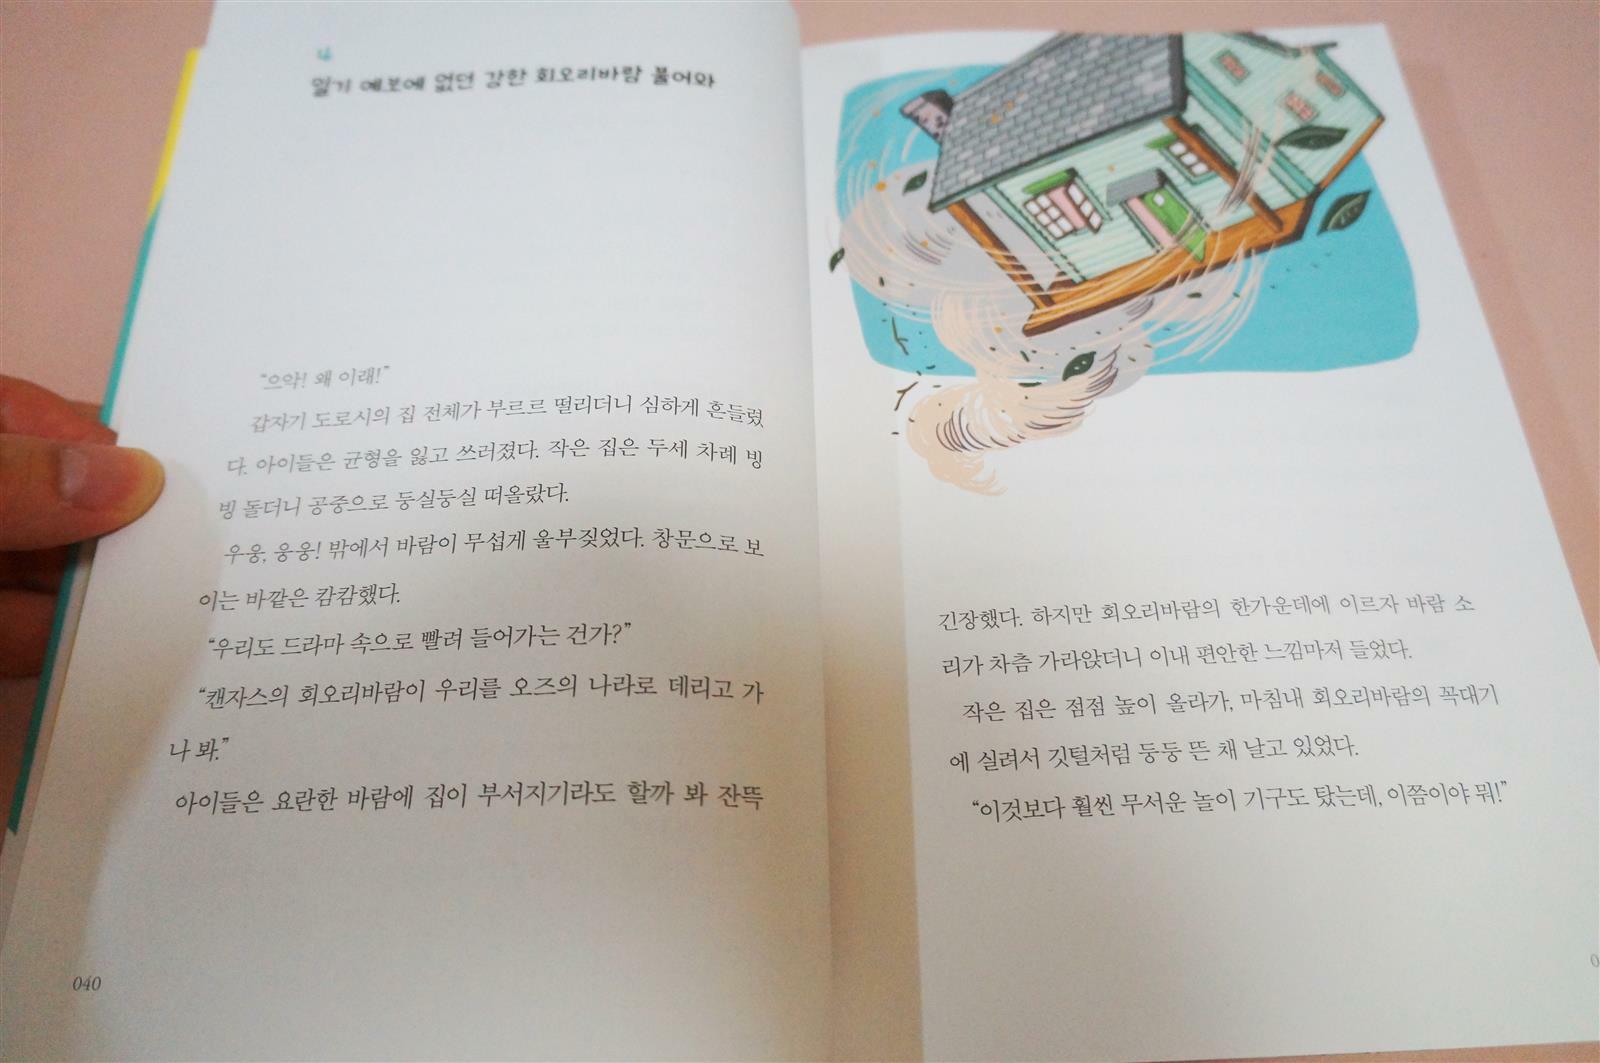 4
일기 예보에 없던 강한 회오리바람 불어와
“으악! 왜 이래!”
갑자기 도로시의 집 전체가 부르르 떨리더니 심하게 흔들렸
다. 아이들은 균형을 잃고 쓰러졌다. 작은 집은 두세 차례 빙
빙 돌더니 공중으로 둥실둥실 떠올랐다.
우웅, 웅웅! 밖에서 바람이 무섭게 울부짖었다. 창문으로 보
이는 바깥은 캄캄했다.
“우리도 드라마 속으로 빨려 들어가는 건가?”
“캔자스의 회오리바람이 우리를 오즈의 나라로 데리고 가
나 봐.”
아이들은 요란한 바람에 집이 부서지기라도 할까 봐 잔뜩
040
긴장했다. 하지만 회오리바람의 한가운데에 이르자 바람 소
리가 차츰 가라앉더니 이내 편안한 느낌마저 들었다.
작은 집은 점점 높이 올라가, 마침내 회오리바람의 꼭대기
에 실려서 깃털처럼 둥둥 뜬 채 날고 있었다.
“이것보다 훨씬 무서운 놀이 기구도 탔는데, 이쯤이야 뭐!”